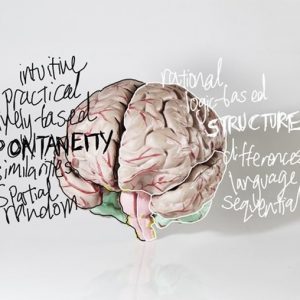 intuitive
practical
PONTANEITY
similarities
spatial
random
rational
logic-based
STRUCTURE
differences
language
sequential